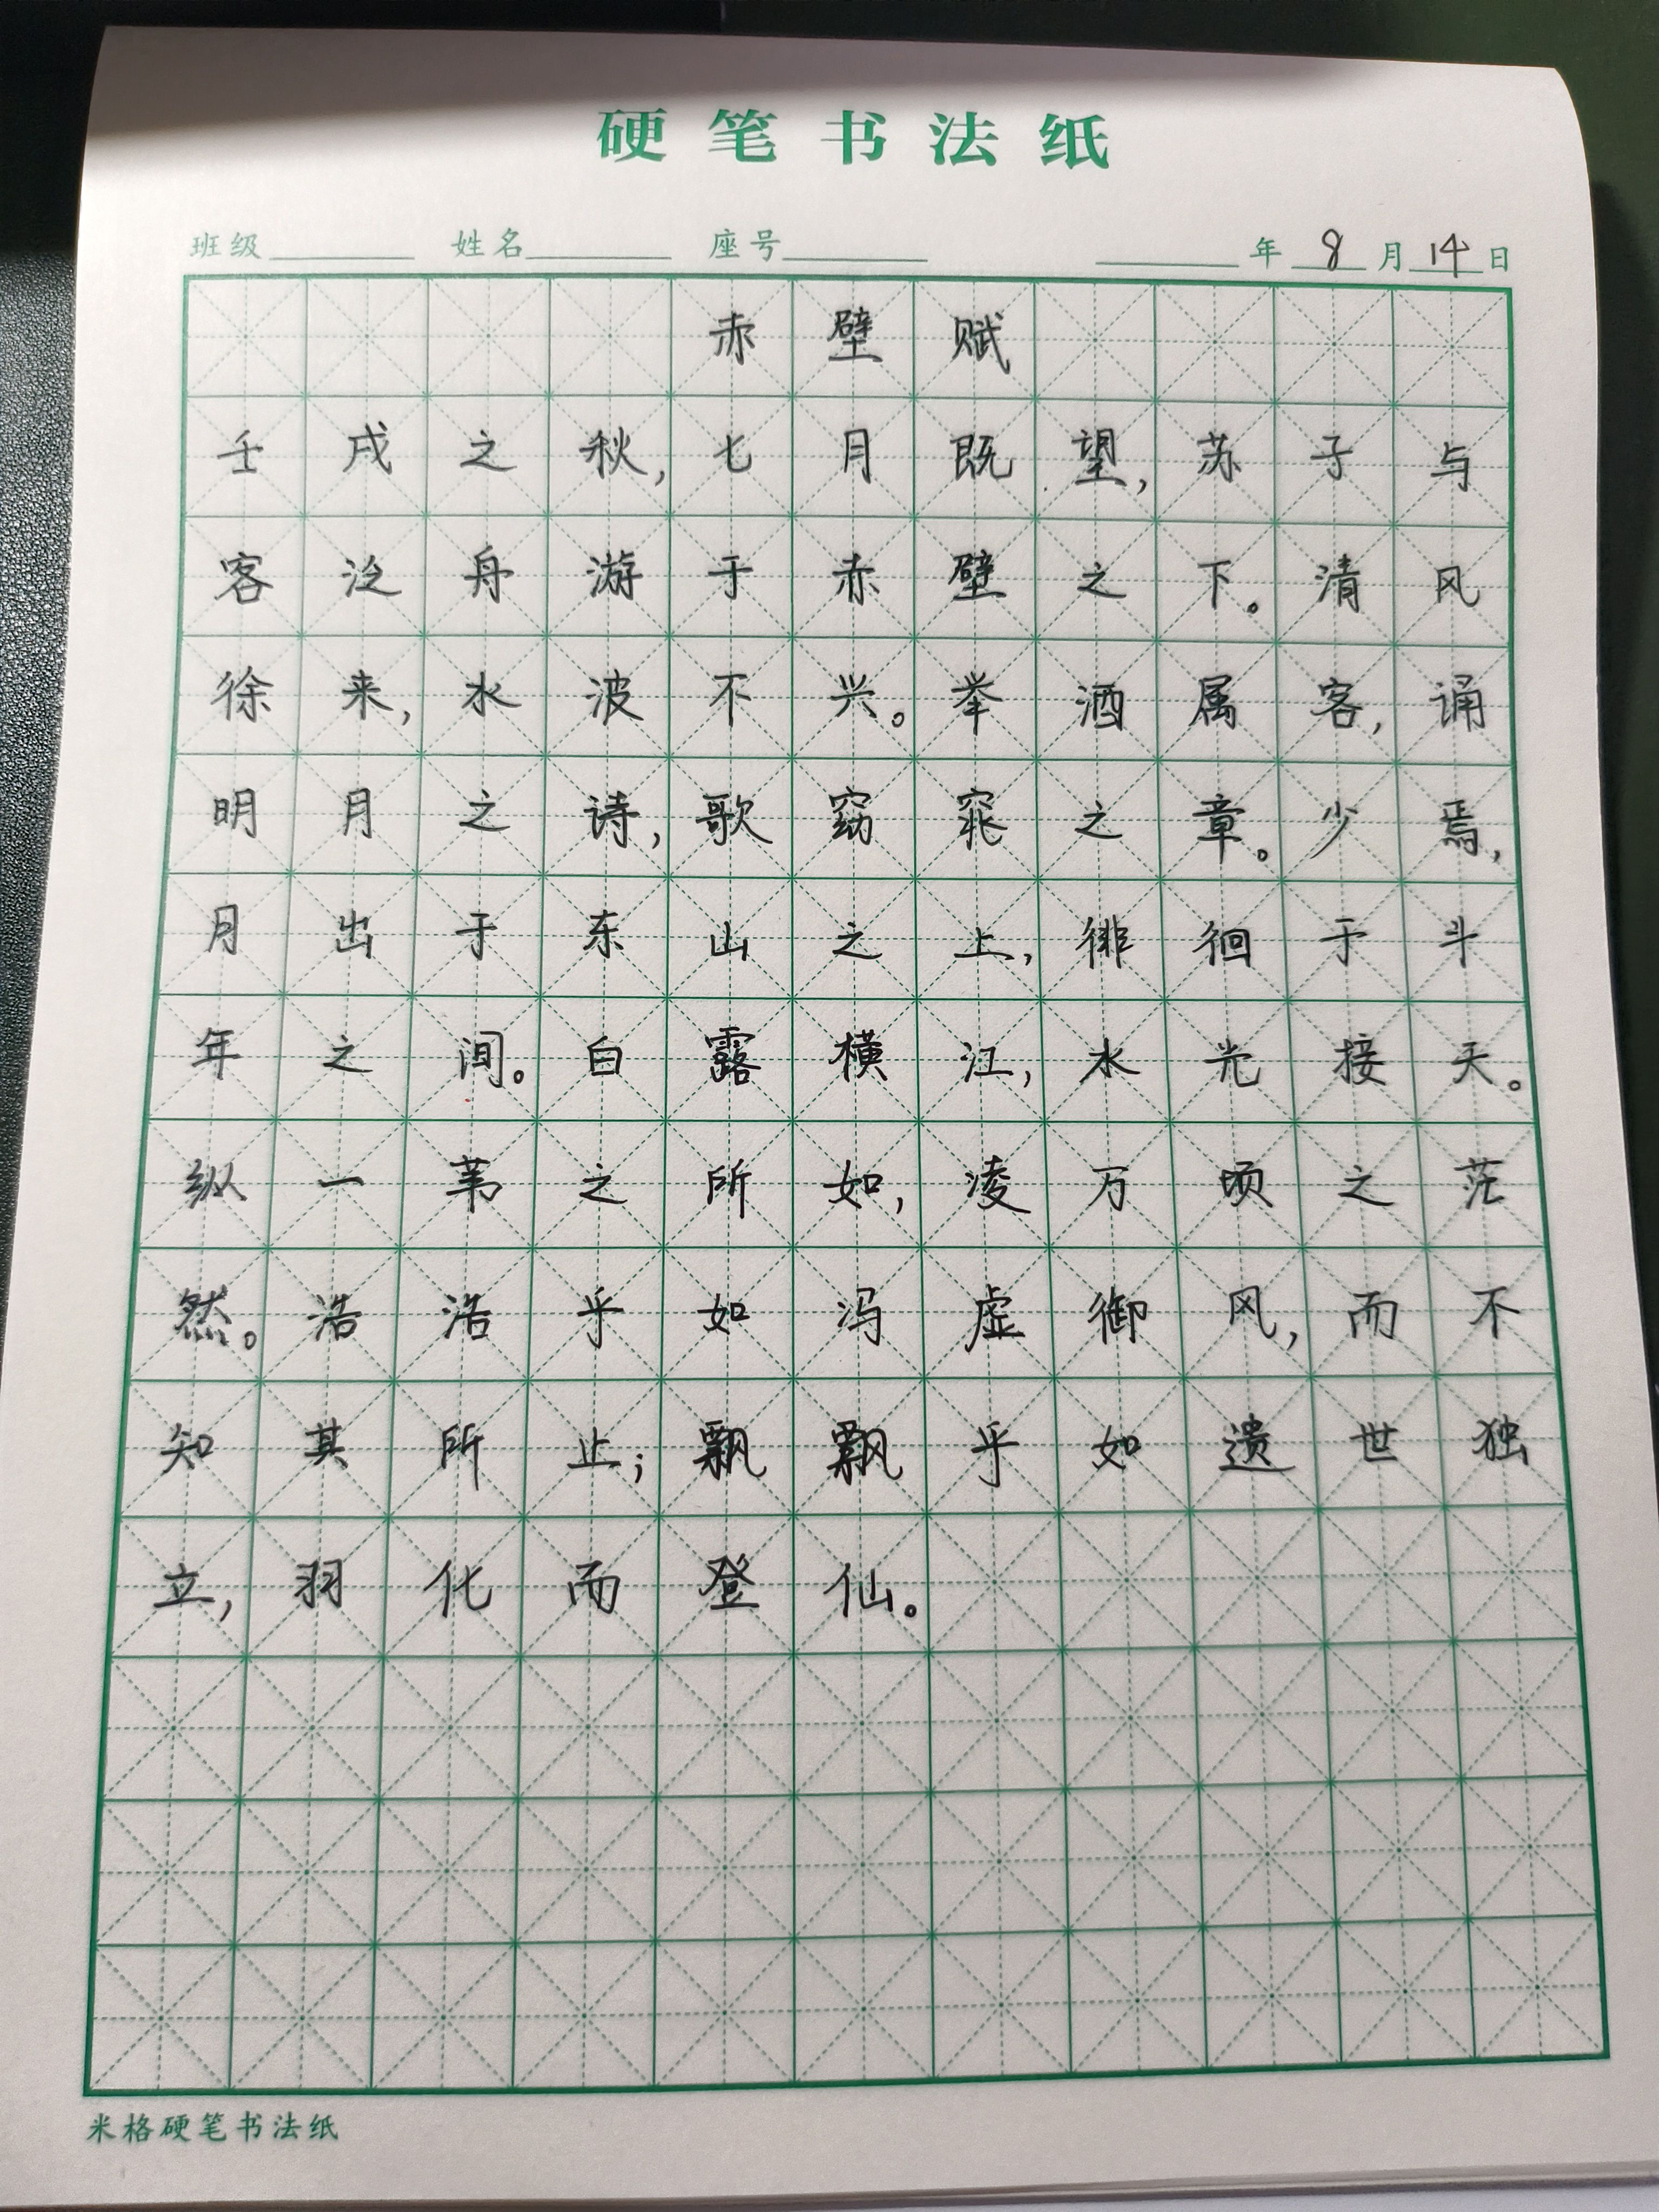 硬笔书法纸
班级 姓名 座号 年 8 月 14 日
赤壁赋
壬戌之秋,七月既望,苏子与
客泛舟游于赤壁之下。清风
徐来,水波不兴。举酒属客,诵
明月之诗,歌窈窕之章。少焉,
月出于东山之上,徘徊于斗
年之间。白露横江,水光接天。
纵一苇之所如,凌万顷之茫
然。浩浩乎如冯虚御风,而不
知其所止;飘飘乎如遗世独
立,羽化而登仙。
米格硬笔书法纸